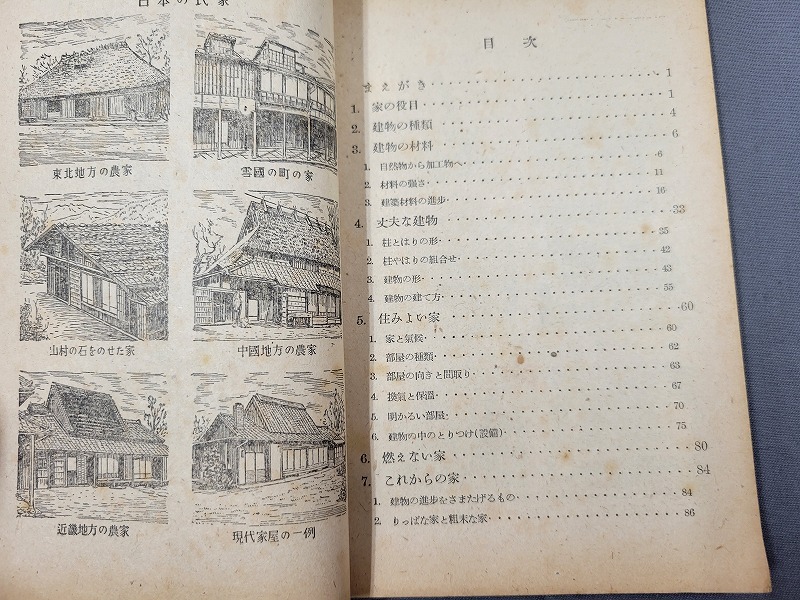 日本の民家
東北地方の農家
雪國の町の家
山村の石をのせた家
中國地方の農家
近畿地方の農家
現代家屋の一例
目次
まえがき 1
1. 家の役目 1
2. 建物の種類 4
3. 建物の材料 6
1. 自然物から加工物へ 6
2. 材料の強さ 11
3. 建築材料の進步 16
4. 丈夫な建物 33
1. 柱とはりの形 35
2. 柱やはりの組合せ 42
3. 建物の形 43
4. 建物の建て方 55
5. 住みよい家 60
1. 家と氣候 60
2. 部屋の種類 62
3. 部屋の向きと間取り 63
4. 換氣と保溫 67
5. 明かるい部屋 70
6. 建物の中のとりつけ(設備) 75
6. 燃えない家 80
7. これからの家 84
1. 建物の進步をさまたげるもの 84
2. りっぱな家と粗末な家 86